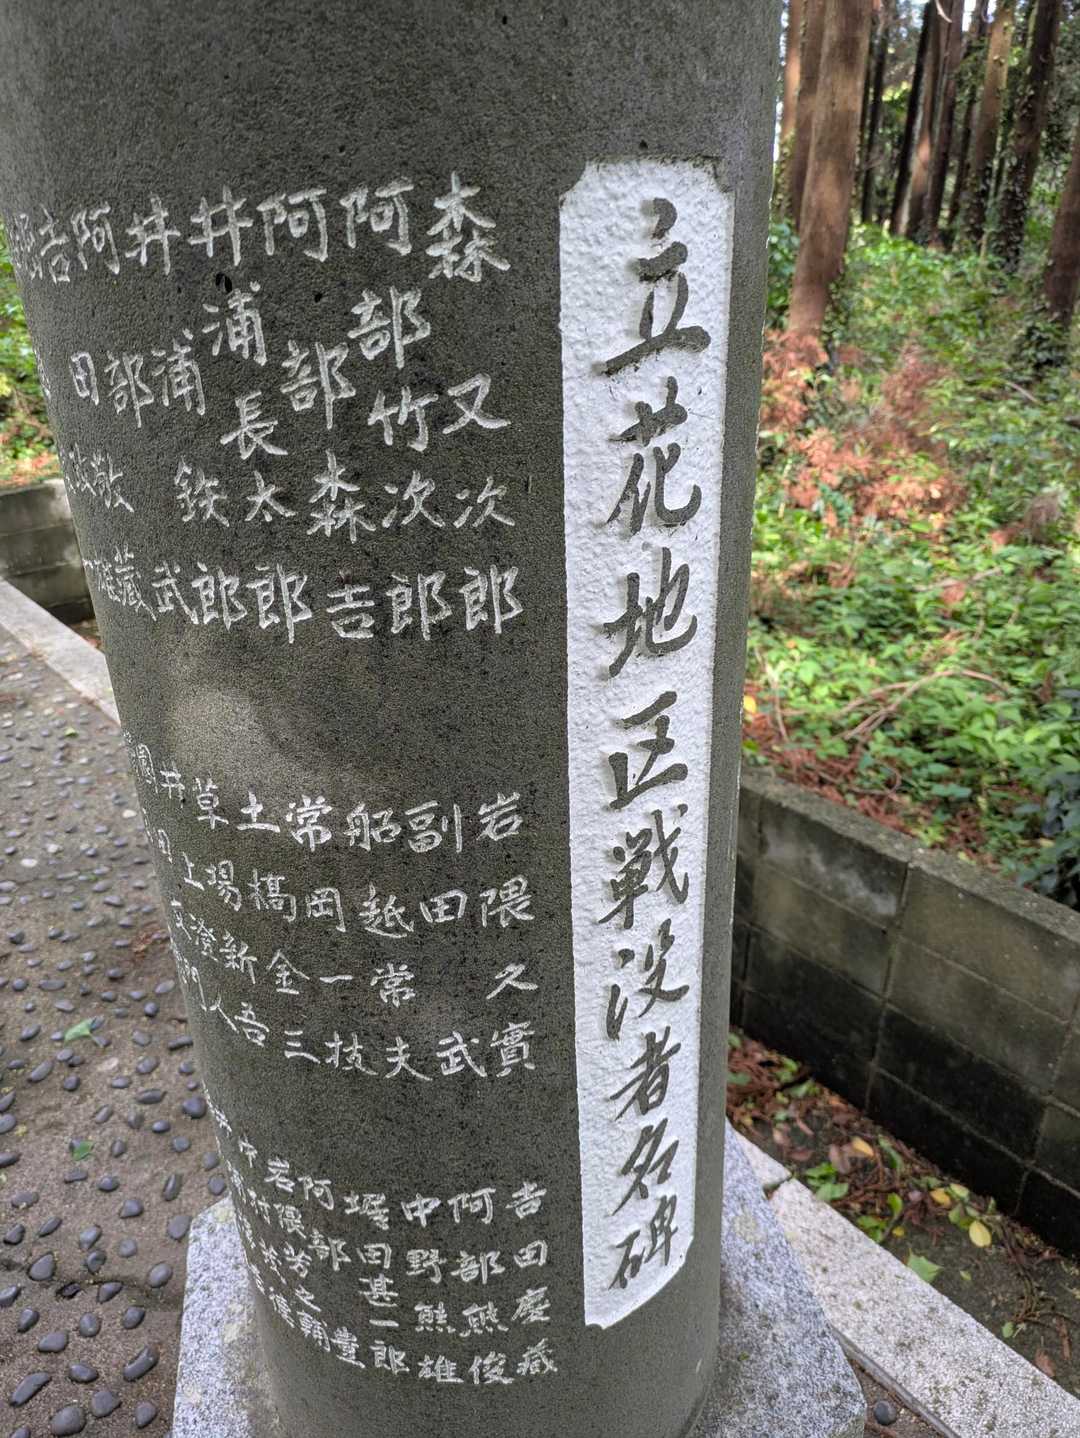 立花地区戦没者名碑
森又次郎
阿部竹次郎
阿部森吉
井浦長太郎
井浦鉄郎
阿部武
吉日敬藏
岩隈久實
副田武
船越常夫
常岡一枝
土橋金三
草場新吾
井上澄人
吉田慶藏
阿部熊俊
中野熊雄
堀田甚一郎
阿部豊
岩隈芳之輔